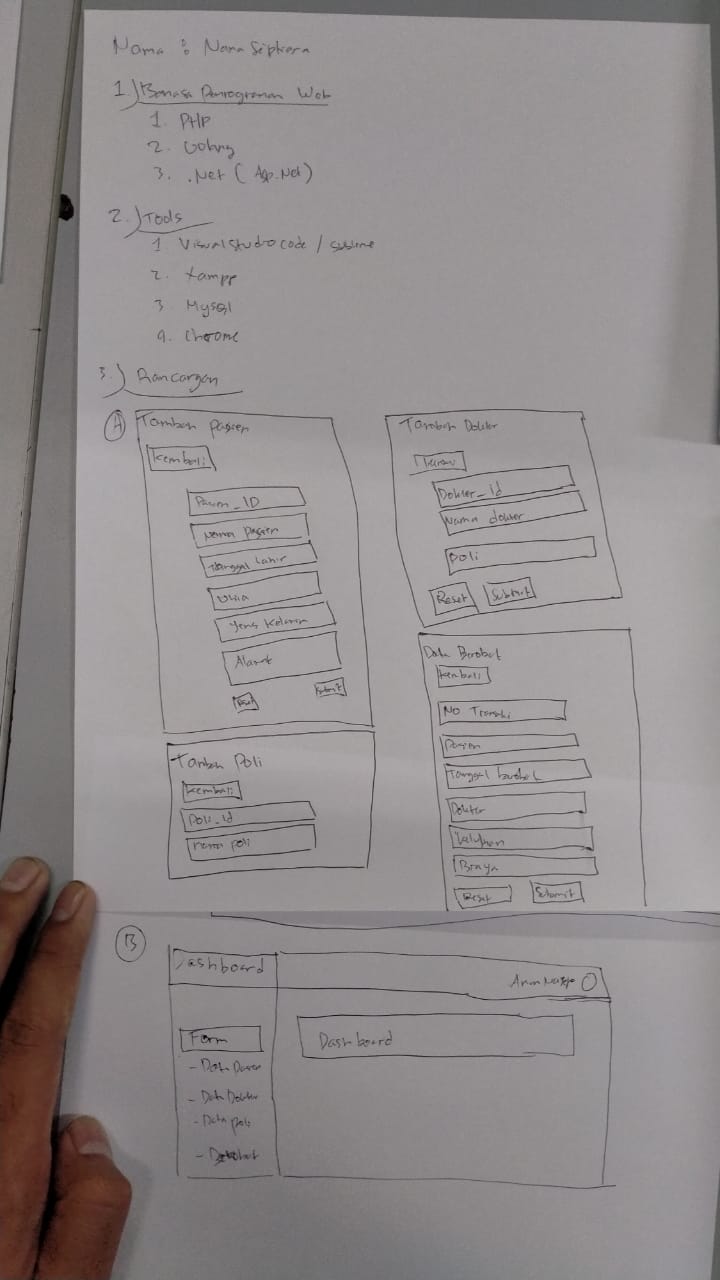 Nama : Nana Sipkera
1.) Bahasa Pemrograman Web
1. PHP
2. Golang
3. .Net ( Asp.Net )
2.) Tools
1. Visual Studio code / sublime
2. Xampp
3. Mysql
4. Chrome
3.) Rancangan
A
Tambah Pasien
Kembali
Pasien_ID
Nama Pasien
Tanggal Lahir
Usia
Jenis Kelamin
Alamat
Reset
Submit
Tambah Dokter
Dokter_Id
Nama dokter
Poli
Reset
Submit
Tambah Poli
Kembali
Poli_Id
nama poli
Data Berobat
Kembali
No Transaksi
Pasien
Tanggal berobat
Dokter
Keluhan
Biaya
Reset
Submit
B
Dashboard
Form
- Data Pasien
- Data Dokter
- Data Poli
Dashboard